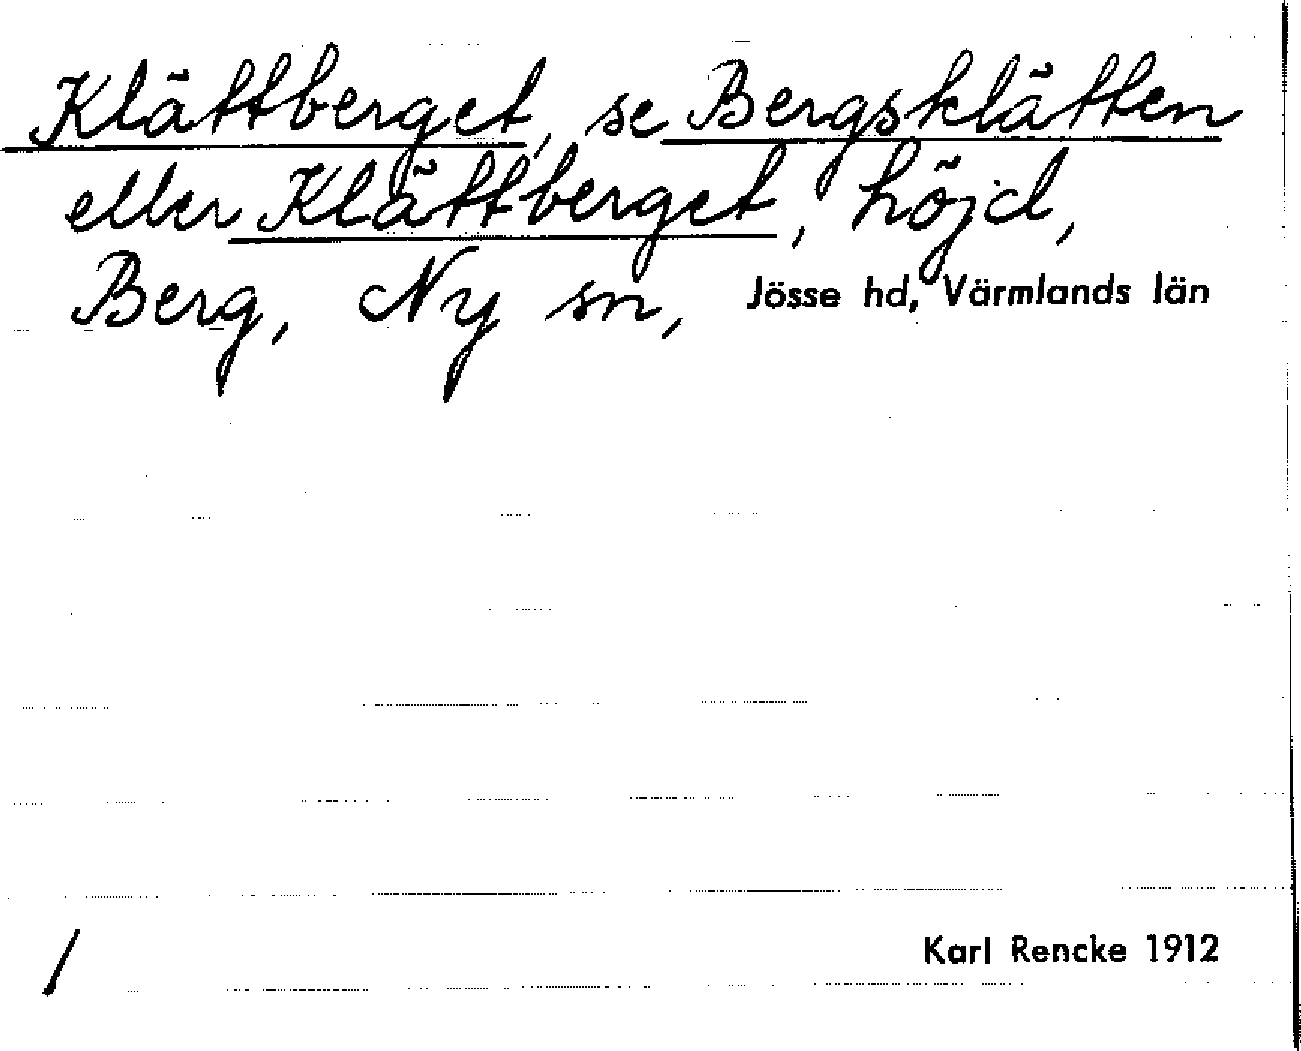 Klättberget, se Bergsklätten
eller Klättberget, höjd,
Berg, Ny sn, Jösse hd, Värmlands län
/
Karl Rencke 1912